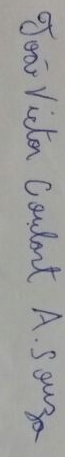 João Victor Goulart A. Souza